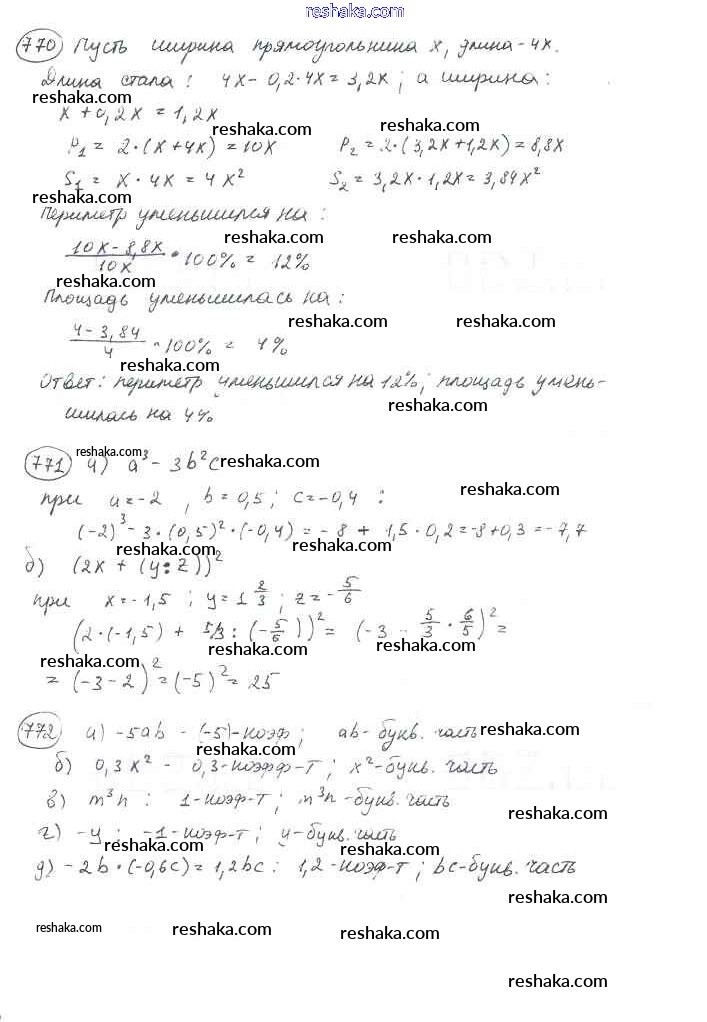 reshaka.com
770 Пусть ширина прямоугольника x, длина - 4x.
Длина стала: 4x - 0,2·4x = 3,2x; а ширина:
reshaka.com reshaka.com
x + 0,2x = 1,2x
reshaka.com reshaka.com
P1 = 2·(x+4x) = 10x P2 = 2·(3,2x+1,2x) = 8,8x
S1 = x·4x = 4x² S2 = 3,2x·1,2x = 3,84x²
reshaka.com reshaka.com
Периметр уменьшился на:
reshaka.com reshaka.com
(10x - 8,8x)/10x · 100% = 12%
reshaka.com reshaka.com
Площадь уменьшилась на:
reshaka.com reshaka.com
(4 - 3,84)/4 · 100% = 4%
reshaka.com
Ответ: периметр уменьшился на 12%; площадь умень-
reshaka.com
шилась на 4%
771 reshaka.com а) a³ - 3b²c reshaka.com
reshaka.com
при a = -2, b = 0,5; c = -0,4:
(-2)³ - 3·(0,5)²·(-0,4) = -8 + 1,5·0,2 = -8+0,3 = -7,7
reshaka.com reshaka.com
б) (2x + (y:z))²
при x = -1,5; y = 1 2/3; z = -5/6
reshaka.com reshaka.com
(2·(-1,5) + 5/3 : (-5/6))² = (-3 - 5/3 · 6/5)² =
reshaka.com reshaka.com
= (-3-2)² = (-5)² = 25
772 а) -5ab - (-5)-коэф; ab- букв. часть
reshaka.com reshaka.com
б) 0,3x² - 0,3-коэфф-т; x²-букв. часть
в) m³n: 1-коэф-т; m³n-букв. часть
reshaka.com
г) -y; -1-коэф-т; y-букв. часть
reshaka.com
д) -2b·(-0,6c) = 1,2bc: 1,2-коэф-т; bc-букв. часть
reshaka.com
reshaka.com reshaka.com reshaka.com
reshaka.com